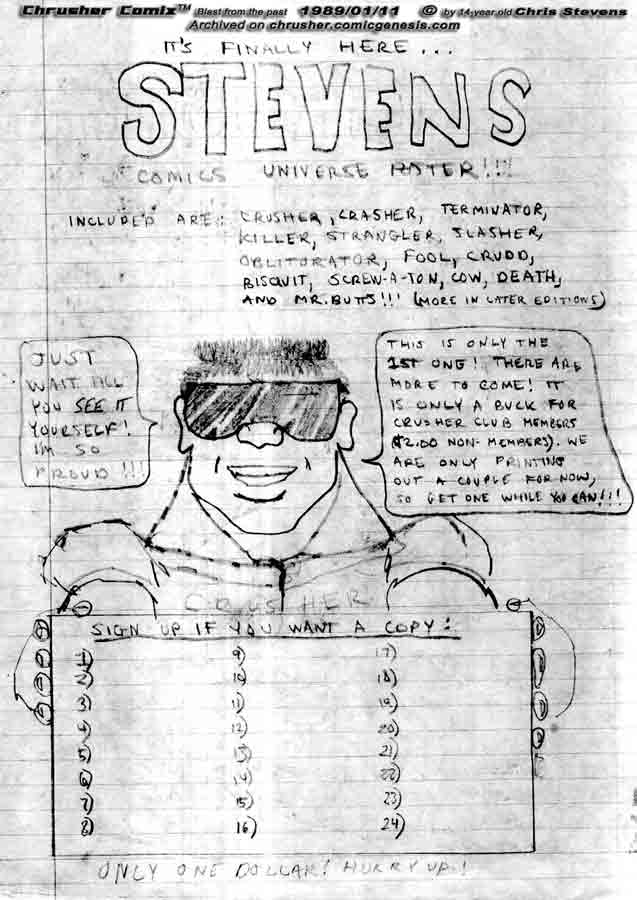 Chrusher Comix™ Blast from the past 1989/01/11 © by 14-year old Chris Stevens
Archived on chrusher.comicgenesis.com
IT'S FINALLY HERE...
STEVENS
COMICS UNIVERSE POTER!!!
INCLUDED ARE: CRUSHER, CRASHER, TERMINATOR,
KILLER, STRANGLER, SLASHER,
OBLITORATOR, FOOL, CRUDD,
BISQUIT, SCREW-A-TON, COW, DEATH,
AND MR. BUTTS!!! (MORE IN LATER EDITIONS)
JUST
WAIT TILL
YOU SEE IT
YOURSELF!
I'M SO
PROUD!!!
THIS IS ONLY THE
1ST ONE! THERE ARE
MORE TO COME! IT
IS ONLY A BUCK FOR
CRUSHER CLUB MEMBERS
($2.00 NON-MEMBERS). WE
ARE ONLY PRINTING
OUT A COUPLE FOR NOW,
SO GET ONE WHILE YOU CAN!!!
CRUSHER
SIGN UP IF YOU WANT A COPY:
1) 9) 17)
2) 10) 18)
3) 11) 19)
4) 12) 20)
5) 13) 21)
6) 14) 22)
7) 15) 23)
8) 16) 24)
ONLY ONE DOLLAR! HURRY UP!